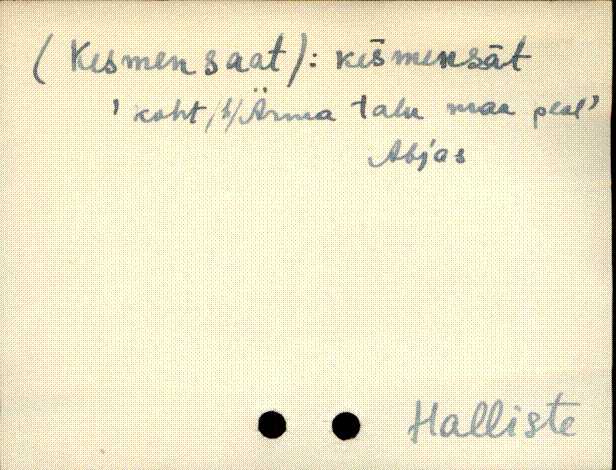 (Kesmensaat): kēsmensāt
' koht /b/ Ärma talu maa peal'
Abjas
Halliste